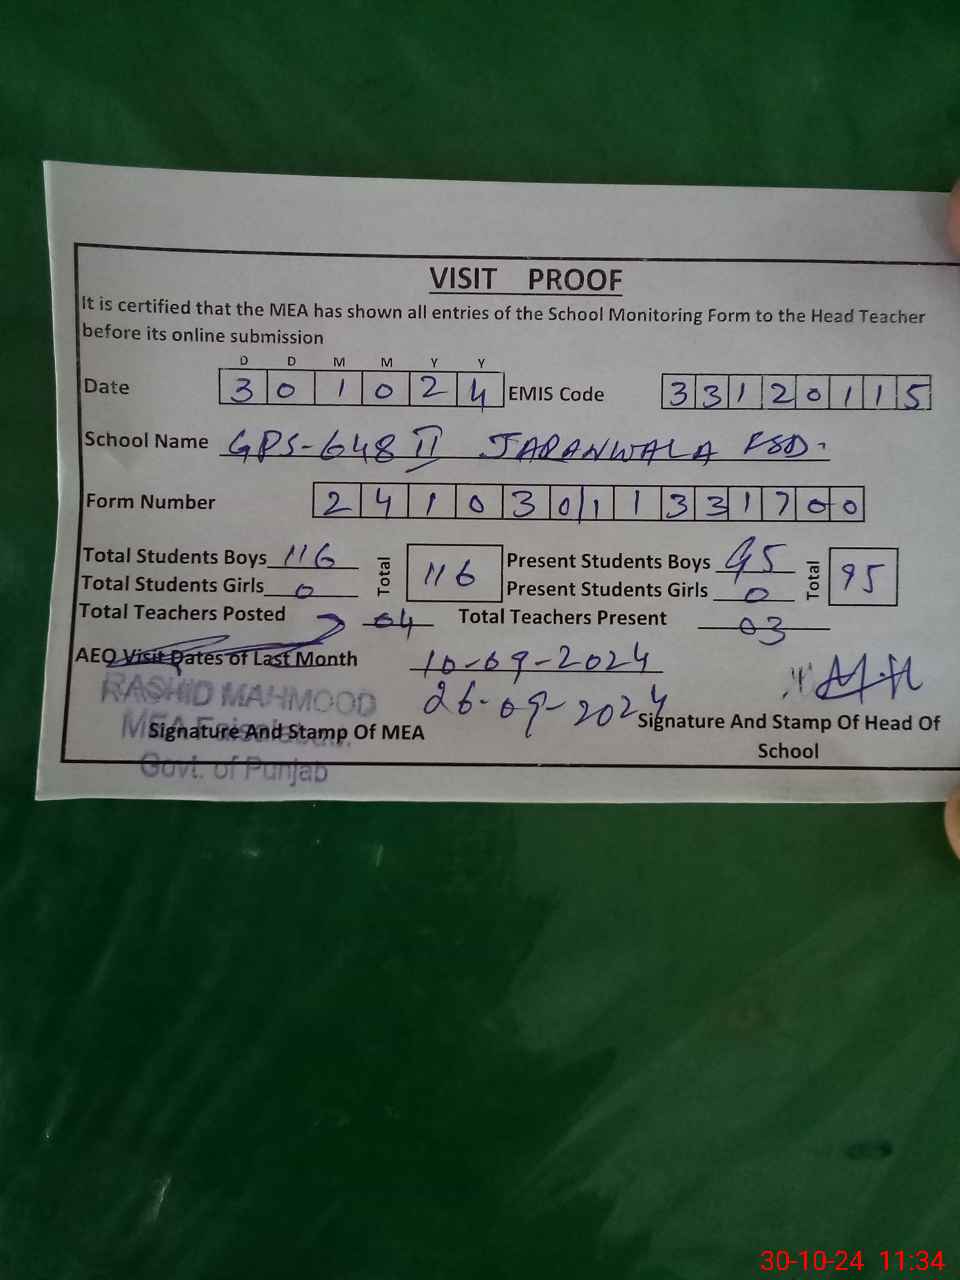 VISIT PROOF
It is certified that the MEA has shown all entries of the School Monitoring Form to the Head Teacher
before its online submission
D D M M Y Y
Date 3 0 1 0 2 4 EMIS Code 3 3 1 2 0 1 1 5
School Name GPS-648 II JARANWALA FSD.
Form Number 2 4 1 0 3 0 1 1 3 3 1 7 0 0
Total Students Boys 116 Total 116 Present Students Boys 95 Total 95
Total Students Girls 0 Present Students Girls 0
Total Teachers Posted 04 Total Teachers Present 03
AEO Visit Dates of Last Month 10-09-2024
26-09-2024
RASHID MAHMOOD
MEA Faisalabad.
Govt. of Punjab
Signature And Stamp Of MEA
Signature And Stamp Of Head Of
School
30-10-24 11:34